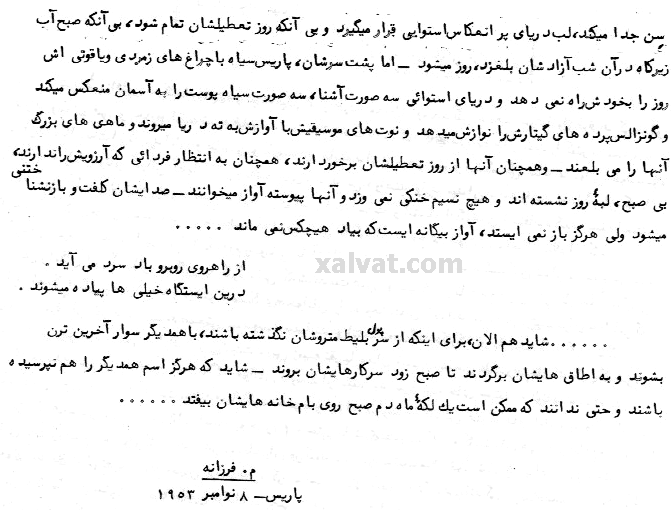 سن جدا میکند، لب دریای پر انعکاس استوایی قرار میگیرد و بی آنکه روز تعطیلشان تمام شود، بی‌آنکه صبح آب
زیرکاه درآن شب آزاد شان بلغزد، روز میشود ــ اما پشت سرشان، پاریس سیاه با چراغ های زمردی ویاقوتی اش
روز را بخود ش راه نمی دهد و دریای استوائی سه صورت آشنا، سه صورت سیاه پوست را به آسمان منعکس میکند
و گونزالس پرده های گیتارش را نوازش میدهد و نوت های موسیقیش با آوازش به ته د ریا میروند و ماهی های بزرگ
آنها را می بلعند ــ وهمچنان آنها از روز تعطیلشان برخورد ارند، همچنان به انتظار فردائی که آرزویش راند ارند،
بی صبح، لبهٔ روز نشسته اند و هیچ نسیم خنکی نمی وزد و آنها پیوسته آواز میخوانند ــ صد ایشان کلفت و بازنشنا ختنی
میشود ولی هرگز باز نمی ایستد، آواز بیگانه ایست که بیاد هیچکس نمی ماند .....
از راهروی روبرو باد سرد می آید .
xalvat.com
درین ایستگاه خیلی ها پیاده میشوند .
...... شاید هم الان، برای اینکه از سر پول بلیط متروشان نگذ شته باشند، با همد یگر سوار آخرین ترن
بشوند و به اطاق هایشان برگردند تا صبح زود سرکارهایشان بروند ــ شاید که هرگز اسم همدیگر را هم نپرسیده
باشند و حتی ند انند که ممکن است یك لکهٔ ماه دم صبح روی بام خانه هایشان بیفتد ......
م. فرزانه
پاریس ــ ۸ نوامبر ۱۹۵۳